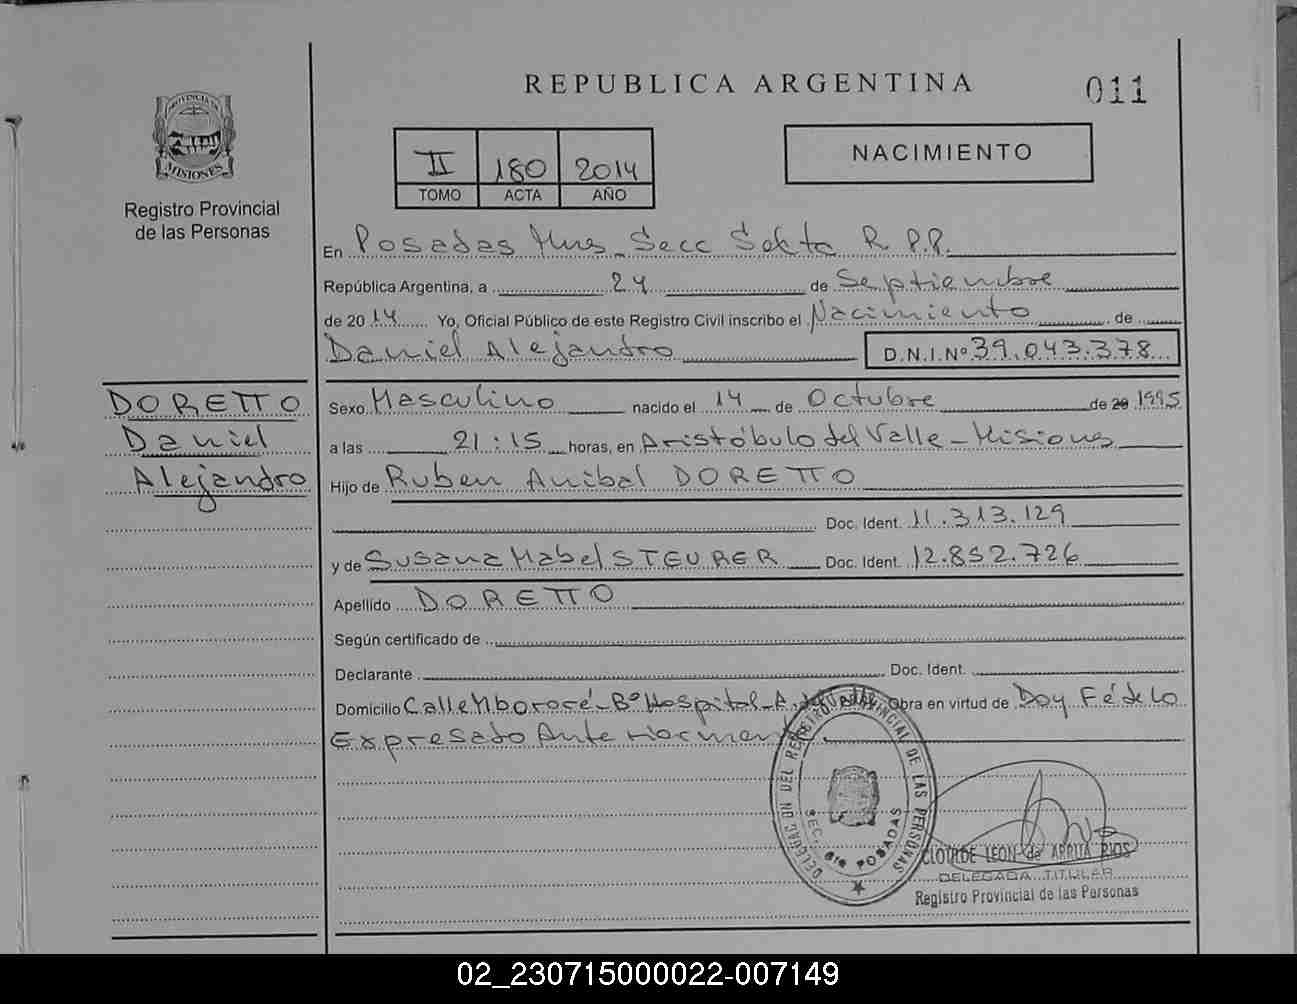 REPUBLICA ARGENTINA
011
PROVINCIA DE
MISIONES
Registro Provincial
de las Personas
II 180 2014
TOMO ACTA AÑO
NACIMIENTO
En Posadas Mnes_Secc Sexta R.P.P.
República Argentina, a 24 de Septiembre
de 2014 Yo, Oficial Público de este Registro Civil inscribo el Nacimiento de
Daniel Alejandro D.N.I.Nº 39.043.378
DORETTO
Daniel
Alejandro
Sexo Masculino nacido el 14 de Octubre de 20 1995
a las 21:15 horas, en Aristóbulo del Valle - Misiones
Hijo de Ruben Anibal DORETTO
Doc. Ident. 11.313.129
y de Susana Mabel STEURER Doc. Ident. 12.852.726
Apellido DORETTO
Según certificado de
Declarante Doc. Ident.
Domicilio Calle Mbororé-Bº Hospital-A. del Valle Obra en virtud de Doy Fé de lo
Expresado Anteriormente.
DELEGACION DEL REGISTRO PROVINCIAL DE LAS PERSONAS
SEC. 6ta POSADAS
CLOTILDE LEON de ARRUA RIOS
DELEGADA TITULAR
Registro Provincial de las Personas
02_230715000022-007149